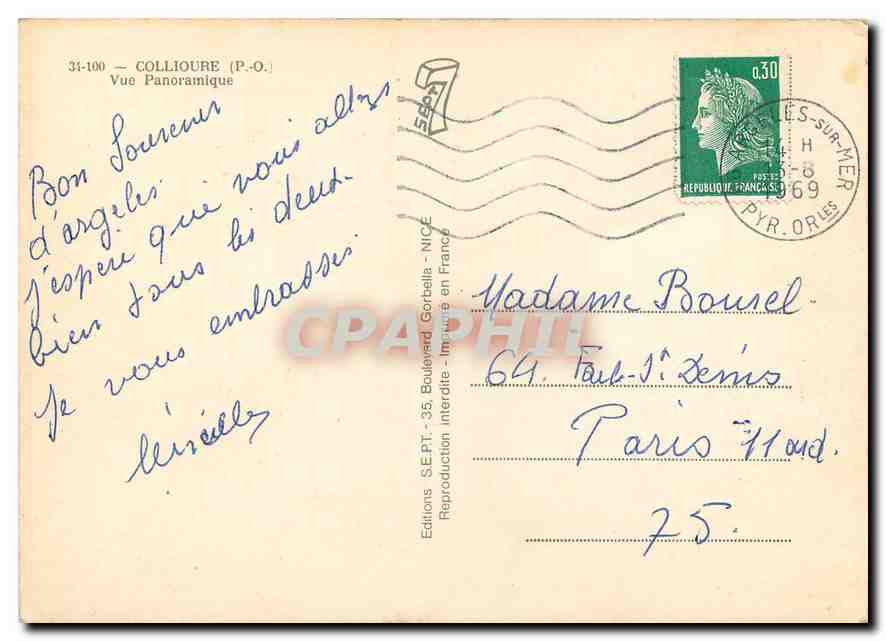 34-100 — COLLIOURE (P.-O.)
Vue Panoramique
Bon Souvenir
d'argelès
j'espère que vous allez
bien tous les deux.
Je vous embrasses
Mireille
SEPT
Editions S.E.P.T. - 35, Boulevard Gorbella - NICE
Reproduction interdite - Imprimé en France
0,30
POSTES
REPUBLIQUE FRANÇAISE
ARGELES-SUR-MER
14 H
13-8
1969
PYR. ORLES
Madame Boursel
64. Faub-St Denis
Paris 11 ard.
75.
CPAPHIL